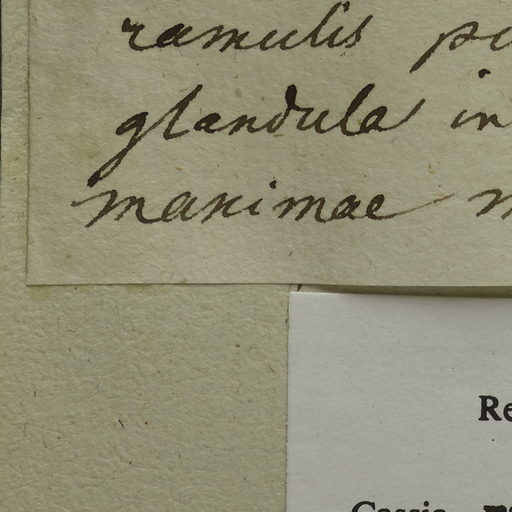 ramulis
glandula in
maximae
Re
Cassia